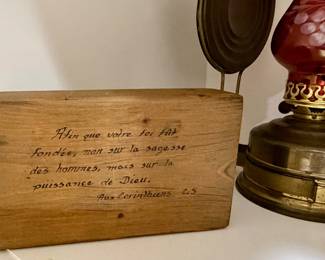 Afin que votre foi fût
fondée, non sur la sagesse
des hommes, mais sur la
puissance de Dieu.
Aux Corinthiens 2.5